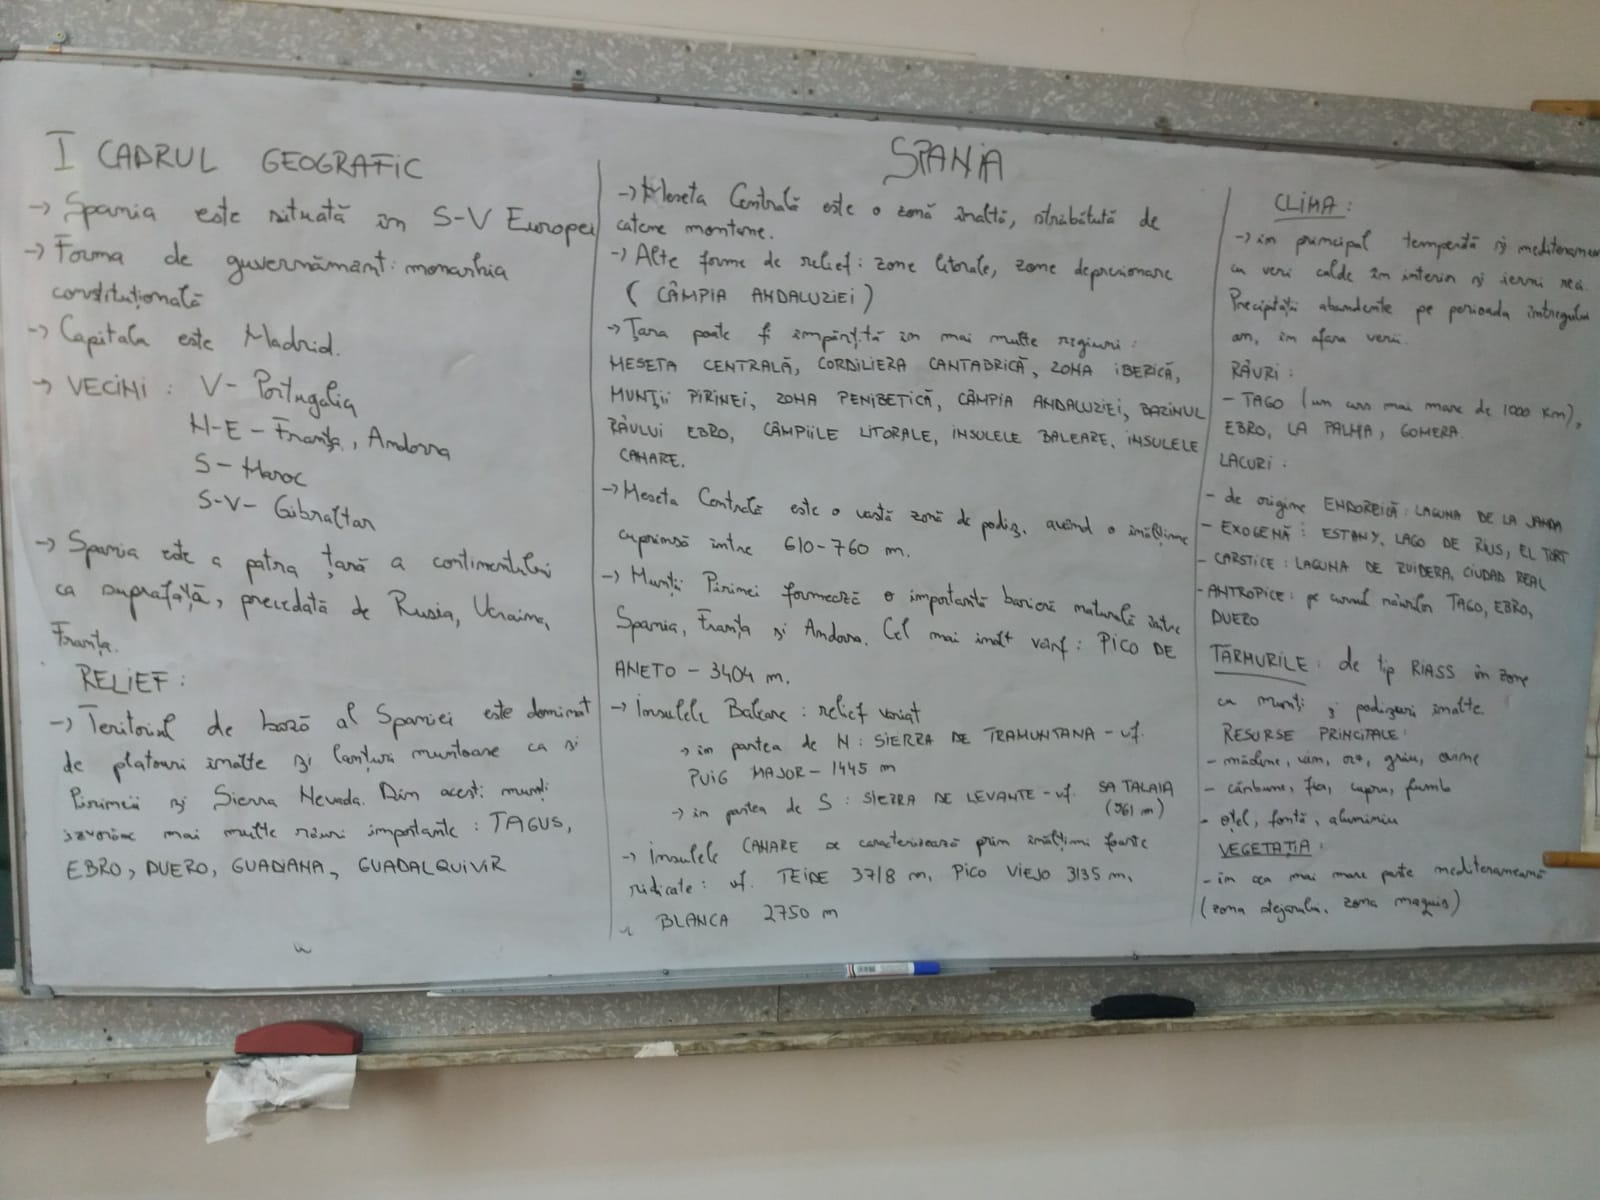 SPANIA
I CADRUL GEOGRAFIC
→ Spania este situată în S-V Europei
→ Forma de guvernământ: monarhia
constituțională
→ Capitala este Madrid.
→ VECINI : V- Portugalia
N-E - Franța, Andorra
S - Maroc
S-V- Gibraltar
→ Spania este a patra țară a continentului
ca suprafață, precedată de Rusia, Ucraina,
Franța.
RELIEF :
→ Teritoriul de bază al Spaniei este dominat
de platouri înalte și lanțuri muntoase ca și
Pirineii și Sierra Nevada. Din acești munți
izvorăsc mai multe râuri importante : TAGUS,
EBRO, DUERO, GUADIANA, GUADALQUIVIR
→ Meseta Centrală este o zonă înaltă, străbătută de
catene montane.
→ Alte forme de relief : zone litorale, zone depresionare
( CÂMPIA ANDALUZIEI )
→ Țara poate fi împărțită în mai multe regiuni :
MESETA CENTRALĂ, CORDILIERA CANTABRICĂ, ZONA IBERICĂ,
MUNȚII PIRINEI, ZONA PENIBETICĂ, CÂMPIA ANDALUZIEI, BAZINUL
RÂULUI EBRO, CÂMPIILE LITORALE, INSULELE BALEARE, INSULELE
CANARE.
→ Meseta Centrală este o vastă zonă de podiș, având o înălțime
cuprinsă între 610-760 m.
→ Munții Pirinei formează o importantă barieră naturală între
Spania, Franța și Andora. Cel mai înalt vârf : PICO DE
ANETO - 3404 m.
→ Insulele Baleare : relief variat
→ în partea de N : SIERRA DE TRAMUNTANA - vf.
PUIG MAJOR - 1445 m
→ în partea de S : SIERRA DE LEVANTE - vf. SA TALAIA
(561 m)
→ Insulele CANARE se caracterizează prin înălțimi foarte
ridicate : vf. TEIDE 3718 m, PICO VIEJO 3135 m,
BLANCA 2750 m
CLIMA :
→ în principal temperată și mediteranean
cu veri calde în interior și ierni reci.
Precipitații abundente pe perioada întregului
an, în afara verii.
RÂURI :
- TAGO (un curs mai mare de 1000 km),
EBRO, LA PALMA, GOMERA.
LACURI :
- de origine ENDOREICĂ : LAGUNA DE LA JANDA
- EXOGENĂ : ESTANY, LAGO DE RIUS, EL TORT
- CARSTICE : LAGUNA DE RUIDERA, CIUDAD REAL
- ANTROPICE : pe cursul râurilor TAGO, EBRO,
DUERO
ȚĂRMURILE : de tip RIASS în zone
cu munți și podișuri înalte.
RESURSE PRINCIPALE :
- măsline, vin, orz, grâu, ovine
- cărbune, fier, cupru, plumb
- oțel, fontă, aluminiu
VEGETAȚIA :
- în cea mai mare parte mediteraneană
(zona stejarului, zona maquis)